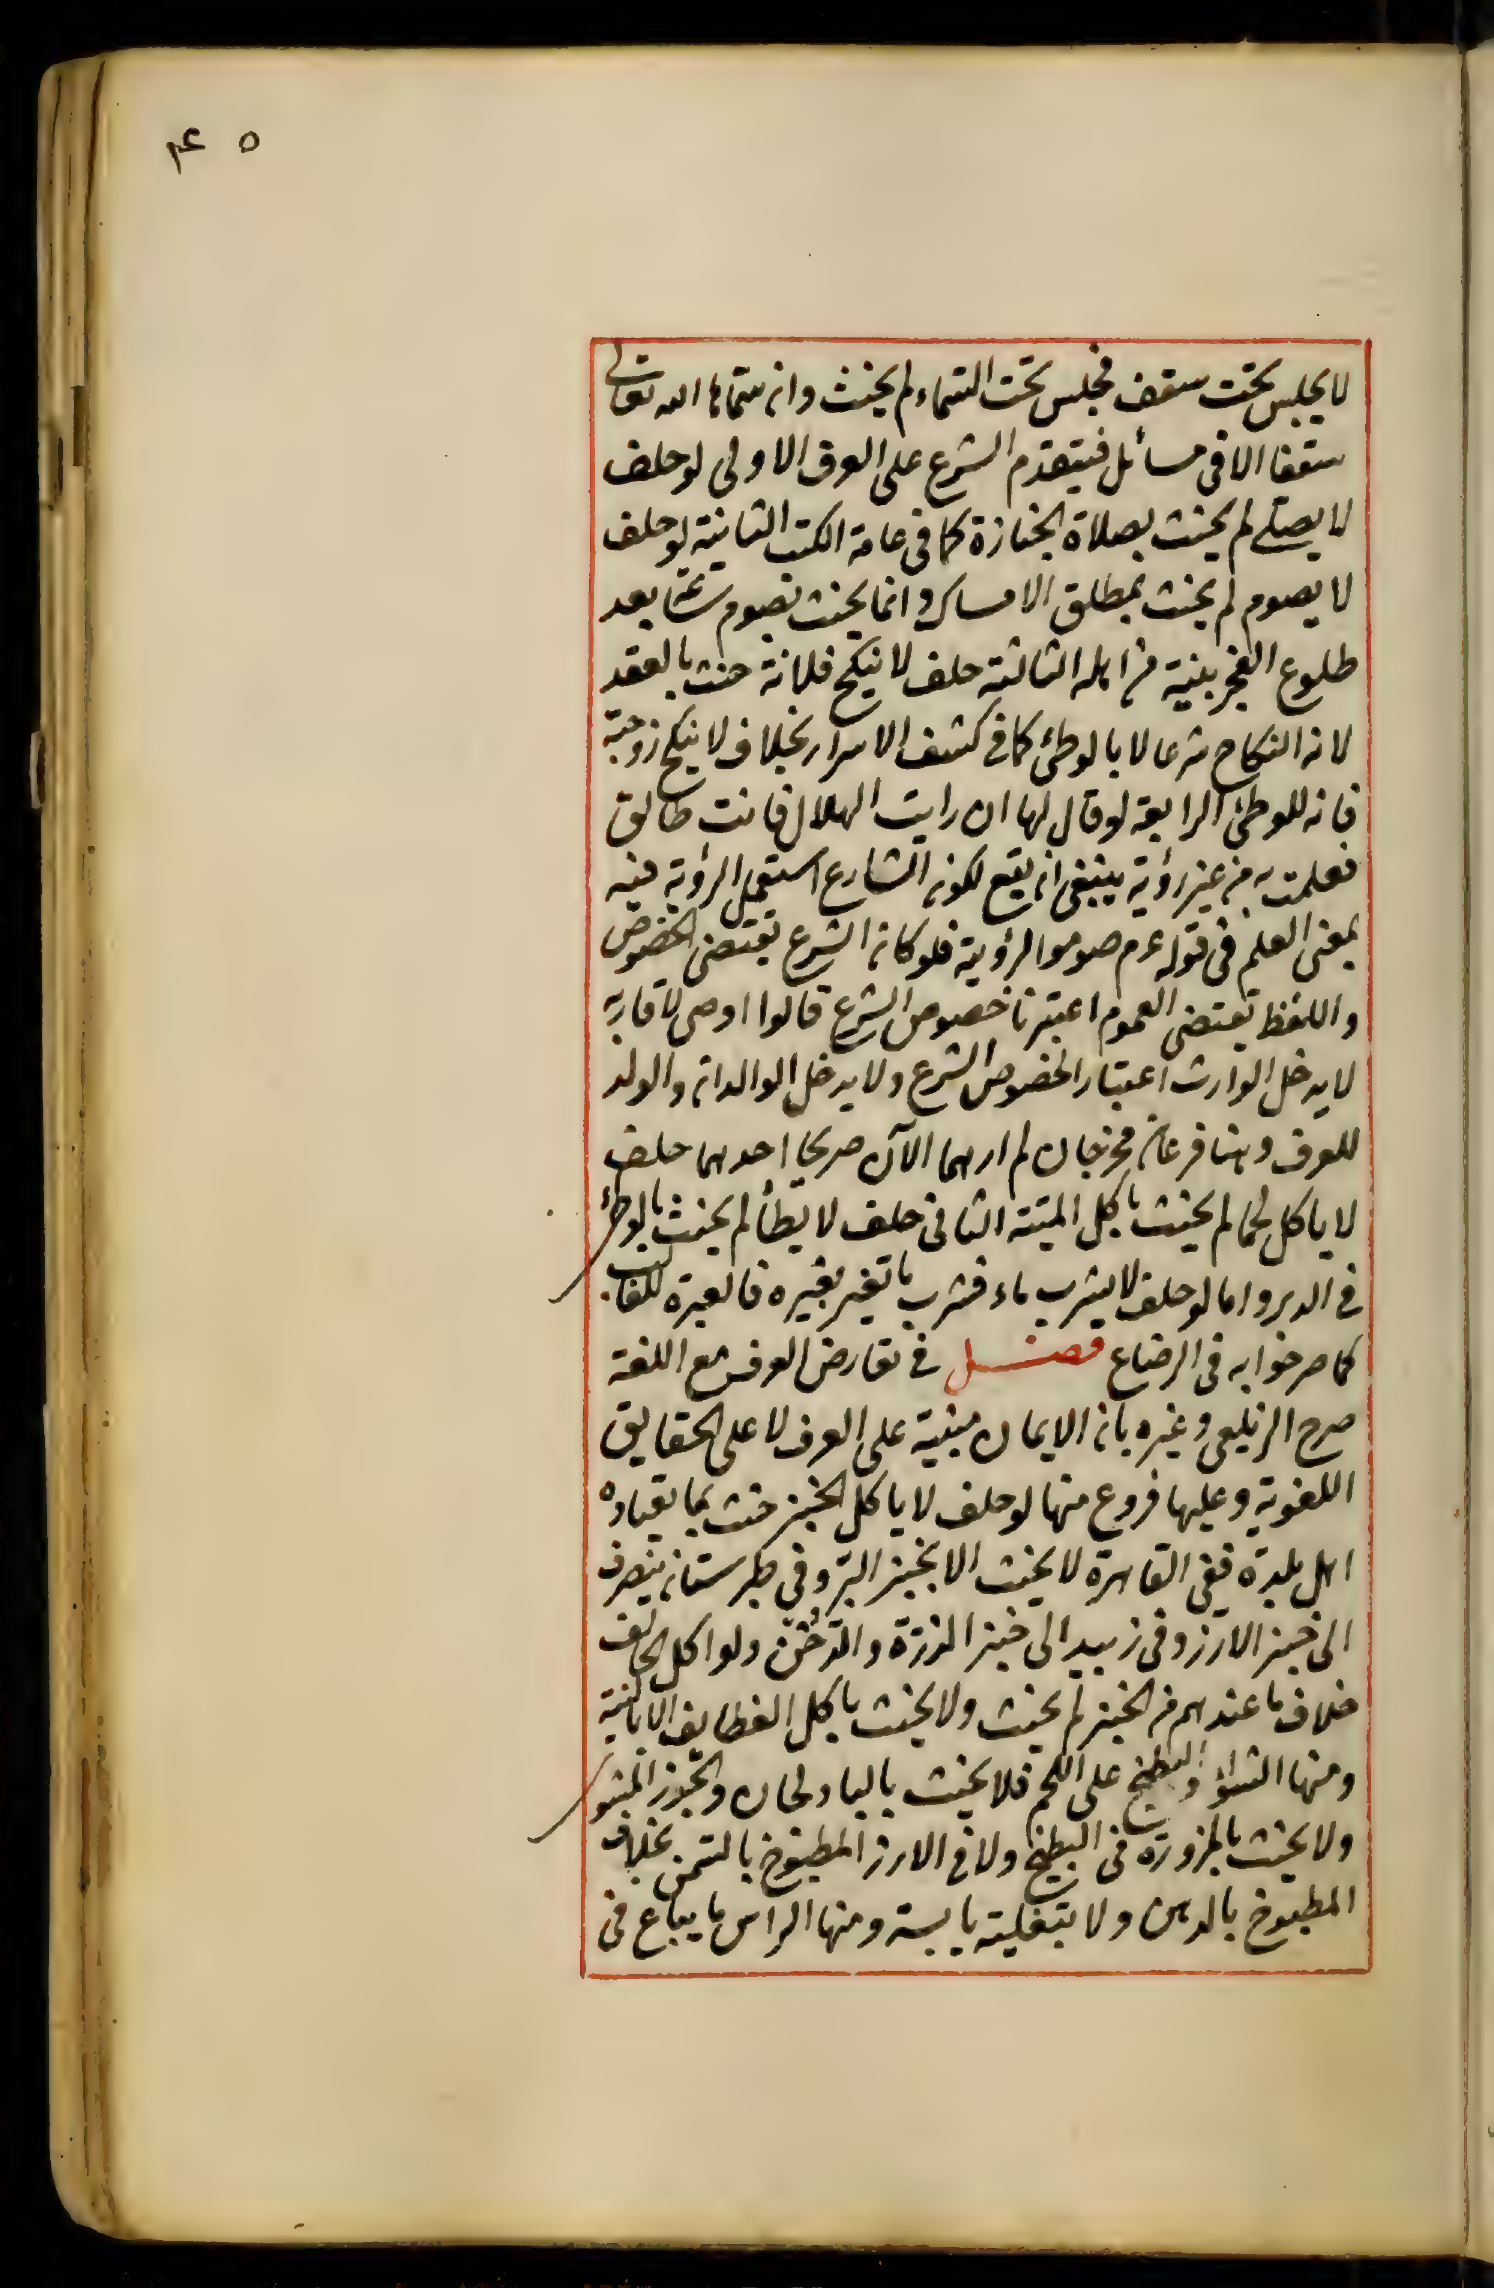 ٤٥
لا يجلس تحت سقف فجلس تحت السماء لم يحنث وان سماها الله تعالى
سقفا الا فى مسائل فيتقدم الشرع على العرف الاولى لو حلف
لا يصلى لم يحنث بصلاة الجنازة كما فى عامة الكتب الثانية لو حلف
لا يصوم لم يحنث بمطلق الامساك وانما يحنث بصوم ساعة بعد
طلوع الفجر بنية من اهله الثالثة حلف لا ينكح فلانة حنث بالعقد
لانه النكاح شرعا لا بالوطئ كما فى كشف الاسرار بخلاف لا ينكح زوجته
فانه للوطئ الرابعة لو قال لها ان رايت الهلال فانت طالق
فعلمت به من غير رؤية ينبغى ان يقع لكون الشارع استعمل الرؤية فيه
بمعنى العلم فى قوله عم صوموا لرؤيته فلو كان الشرع يقتضى الخصوص
واللفظ يقتضى العموم اعتبرنا خصوص الشرع قالوا اوصى لاقاربه
لا يدخل الوارث اعتبارا لخصوص الشرع ولا يدخل الوالدان والولد
للعرف وهنا فرعان مخرجان لم ارهما الآن صريحا احدهما حلف
لا ياكل لحما لم يحنث باكل الميتة الثانى حلف لا يطأ لم يحنث بالوطئ
فى الدبر واما لو حلف لا يشرب ماء فشرب ما تغير بغيره فالعبرة للغالب
كما صرحوا به فى الرضاع فصل فى تعارض العرف مع اللغة
صرح الزيلعى وغيره بان الايمان مبنية على العرف لا على الحقايق
اللغوية وعليها فروع منها لو حلف لا ياكل الخبز حنث بما يعتاده
اهل بلدة ففى القاهرة لا يحنث الا بخبز البر وفى طبرستان ينصرف
الى خبز الارز وفى زبيد الى خبز الذرة والدخن ولو اكل الحالف
خلاف ما عندهم من الخبز لم يحنث ولا يحنث باكل القطايف الا بالنية
ومنها الشواؤ والطبيخ على اللحم فلا يحنث بالباذنجان والجزر المشوى
ولا يحنث بالمزورة فى الطبيخ ولا فى الارز المطبوخ بالسمن بخلاف
المطبوخ بالدهن ولا بقلية يابسة ومنها الراس ما يباع فى